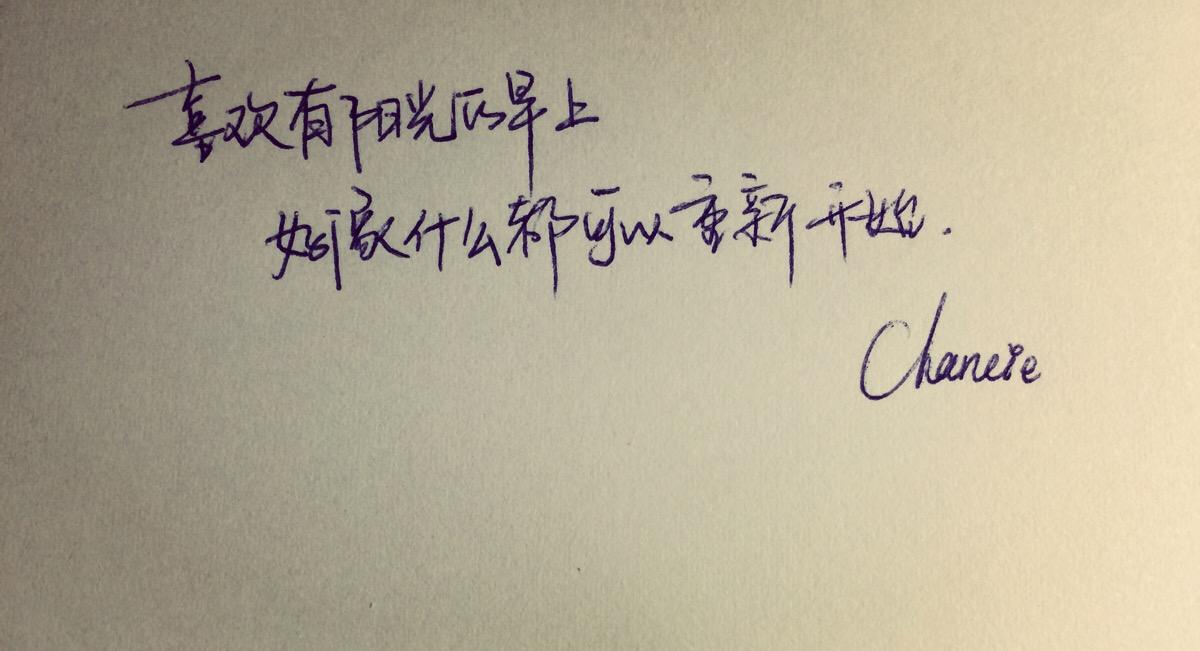 喜欢有阳光的早上
好像什么都可以重新开始.
Chancie